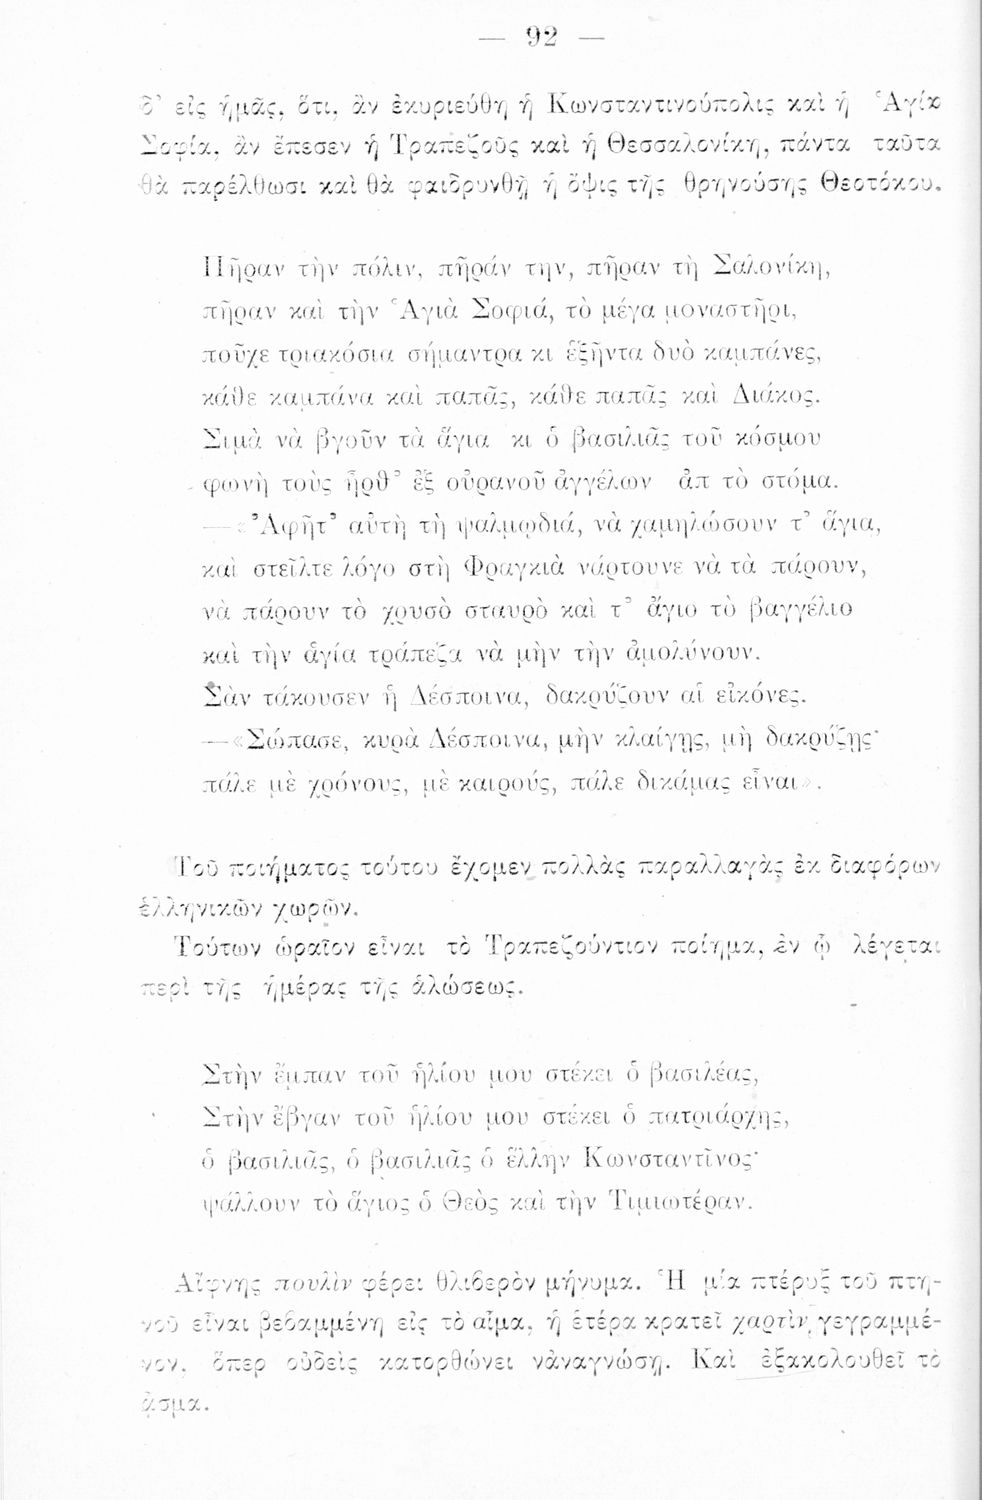 — 92 —
δ’ εἰς ἡμᾶς, ὅτι, ἂν ἐκυριεύθη ἡ Κωνσταντινούπολις καὶ ἡ Ἁγία
Σοφία, ἂν ἔπεσεν ἡ Τραπεζοῦς καὶ ἡ Θεσσαλονίκη, πάντα ταῦτα
θὰ παρέλθωσι καὶ θὰ φαιδρυνθῇ ἡ ὄψις τῆς θρηνούσης Θεοτόκου.
Πῆραν τὴν πόλιν, πῆράν την, πῆραν τὴ Σαλονίκη,
πῆραν καὶ τὴν Ἁγιὰ Σοφιά, τὸ μέγα μοναστῆρι,
ποῦχε τριακόσια σήμαντρα κι ἑξῆντα δυὸ καμπάνες,
κάθε καμπάνα καὶ παπᾶς, κάθε παπᾶς καὶ Διάκος.
Σιμὰ νὰ βγοῦν τὰ ἅγια κι ὁ βασιλιᾶς τοῦ κόσμου
φωνὴ τοὺς ἦρθ’ ἐξ οὐρανοῦ ἀγγέλων ἀπ τὸ στόμα.
— «Ἀφῆτ’ αὐτὴ τὴ ψαλμῳδιά, νὰ χαμηλώσουν τ’ ἅγια,
καὶ στεῖλτε λόγο στὴ Φραγκιὰ νάρτουνε νὰ τὰ πάρουν,
νὰ πάρουν τὸ χρυσὸ σταυρὸ καὶ τ’ ἅγιο τὸ βαγγέλιο
καὶ τὴν ἁγία τράπεζα νὰ μὴν τὴν ἀμολύνουν.
Σὰν τάκουσεν ἡ Δέσποινα, δακρύζουν αἱ εἰκόνες.
— «Σώπασε, κυρὰ Δέσποινα, μὴν κλαίγῃς, μὴ δακρύζῃς·
πάλε μὲ χρόνους, μὲ καιρούς, πάλε δικάμας εἶναι».
Τοῦ ποιήματος τούτου ἔχομεν πολλὰς παραλλαγὰς ἐκ διαφόρων
ἑλληνικῶν χωρῶν.
Τούτων ὡραῖον εἶναι τὸ Τραπεζούντιον ποίημα, ἐν ᾧ λέγεται
περὶ τῆς ἡμέρας τῆς ἁλώσεως.
Στὴν ἔμπαν τοῦ ἡλίου μου στέκει ὁ βασιλέας,
Στὴν ἔβγαν τοῦ ἡλίου μου στέκει ὁ πατριάρχης,
ὁ βασιλιᾶς, ὁ βασιλιᾶς ὁ ἕλλην Κωνσταντῖνος·
ψάλλουν τὸ ἅγιος ὁ Θεὸς καὶ τὴν Τιμιωτέραν.
Αἴφνης πουλὶν φέρει θλιβερὸν μήνυμα. Ἡ μία πτέρυξ τοῦ πτη-
νοῦ εἶναι βεβαμμένη εἰς τὸ αἷμα, ἡ ἑτέρα κρατεῖ χαρτὶν γεγραμμέ-
νον, ὅπερ οὐδεὶς κατορθώνει νἀναγνώσῃ. Καὶ ἐξακολουθεῖ τὸ
ᾆσμα.